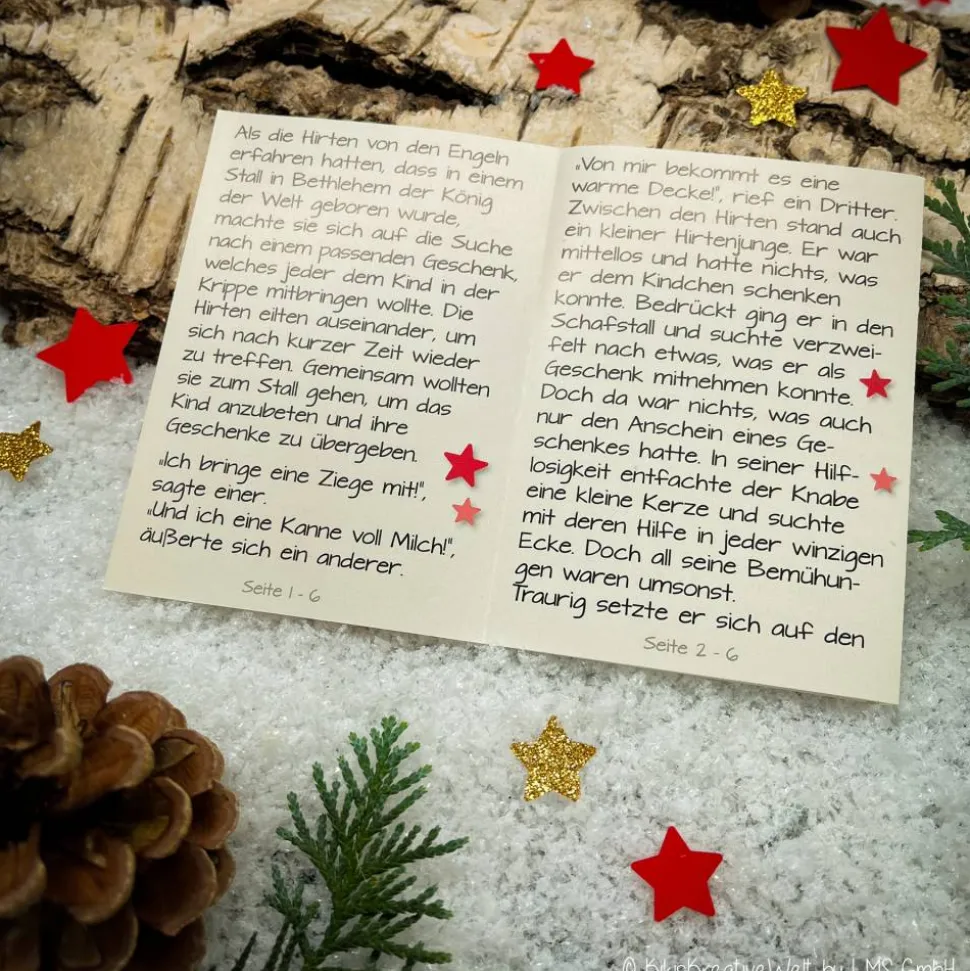 Als die Hirten von den Engeln
erfahren hatten, dass in einem
Stall in Bethlehem der König
der Welt geboren wurde,
machte sie sich auf die Suche
nach einem passenden Geschenk,
welches jeder dem Kind in der
Krippe mitbringen wollte. Die
Hirten eilten auseinander, um
sich nach kurzer Zeit wieder
zu treffen. Gemeinsam wollten
sie zum Stall gehen, um das
Kind anzubeten und ihre
Geschenke zu übergeben.
„Ich bringe eine Ziege mit!",
sagte einer.
„Und ich eine Kanne voll Milch!",
äußerte sich ein anderer.
Seite 1 - 6
„Von mir bekommt es eine
warme Decke!", rief ein Dritter.
Zwischen den Hirten stand auch
ein kleiner Hirtenjunge. Er war
mittellos und hatte nichts, was
er dem Kindchen schenken
konnte. Bedrückt ging er in den
Schafstall und suchte verzwei-
felt nach etwas, was er als
Geschenk mitnehmen konnte.
Doch da war nichts, was auch
nur den Anschein eines Ge-
schenkes hatte. In seiner Hilf-
losigkeit entfachte der Knabe
eine kleine Kerze und suchte
mit deren Hilfe in jeder winzigen
Ecke. Doch all seine Bemühun-
gen waren umsonst.
Traurig setzte er sich auf den
Seite 2 - 6
© KikisKreativeWelt by LMS GmbH